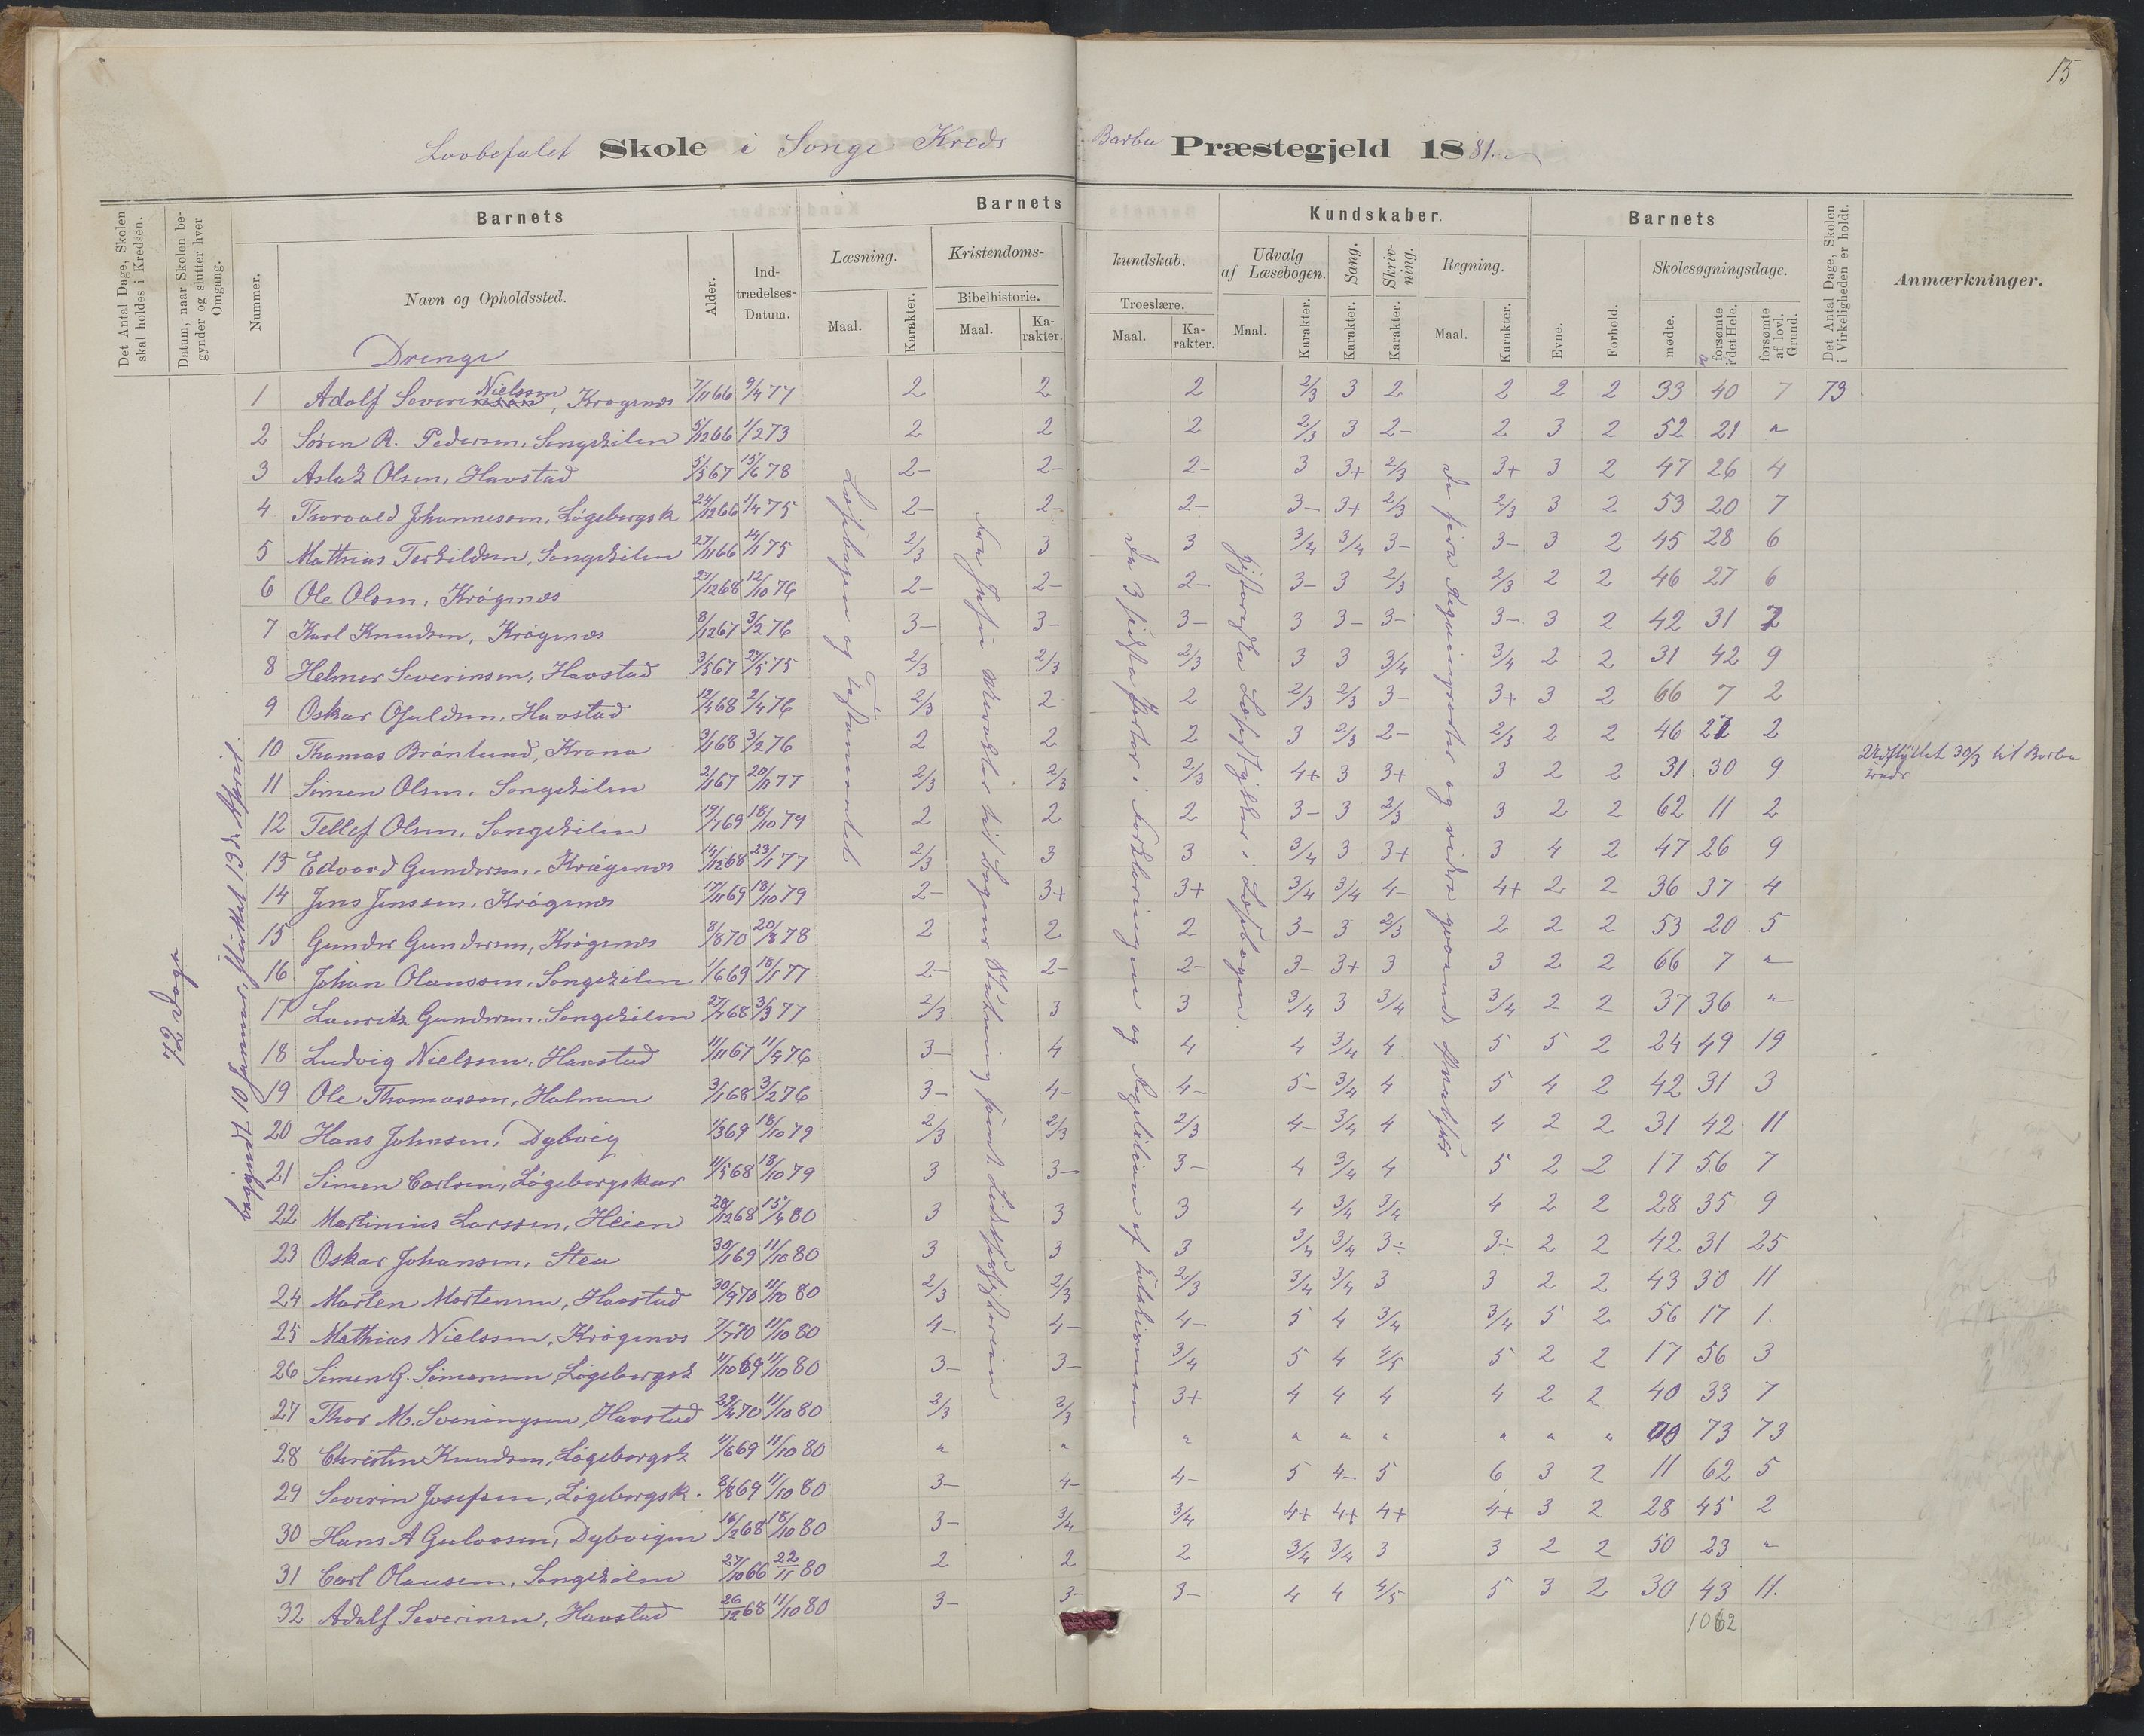 15
Lovbefalet Skole i Songe Kreds Barbu Præstegjeld 1881.
Det Antal Dage, Skolen skal holdes i Kredsen.
Datum, naar Skolen begynder og slutter hver Omgang.
Nummer.
Barnets
Navn og Opholdssted.
Alder.
Indtrædelses-Datum.
Barnets Kundskaber.
Læsning. Maal. Karakter.
Kristendomskundskab.
Bibelhistorie. Maal. Karakter.
Troeslære. Maal. Karakter.
Udvalg af Læsebogen. Maal. Karakter.
Sang. Karakter.
Skrivning. Karakter.
Regning. Maal. Karakter.
Barnets
Evne. Forhold.
Skolesøgningsdage.
mødte. forsømte i det Hele. forsømte af lovl. Grund.
Det Antal Dage, Skolen i Virkeligheden er holdt.
Anmærkninger.
Drenge
72 Dage
begyndt 10 Januar, sluttet 13de April
Læsebogen og Testamentet
1 Adolf Severinsen Nielssen, Krøgenæs 7/11 66 9/4 77 2 2 2 2/3 3 2 2 2 2 33 40 7 73
2 Søren R. Pedersen, Songekilen 5/12 66 1/2 73 2 2 2 2/3 3 2- 2 3 2 52 21 "
3 Aslak Olsen, Havstad 5/5 67 15/6 78 2- 2- 2- 3 3+ 2/3 3+ 3 2 47 26 4
4 Thorvald Johannessen, Løgebergsk 24/12 66 1/4 75 2- 2- 2- 3- 3+ 2/3 2/3 3 2 53 20 7
5 Mathias Terkildsen, Songekilen 27/11 66 14/1 75 2/3 3 3 3/4 3/4 3- 3- 3 2 45 28 6
6 Ole Olsen, Krøgenæs 27/12 68 12/10 76 2- 2- 2- 3- 3 2/3 2/3 2 2 46 27 6
7 Karl Knudsen, Krøgenæs 8/12 67 3/2 76 3- 3- 3- 3 3- 3- 3- 3 2 42 31 2
8 Helmer Severinsen, Havstad 3/5 67 27/5 75 2/3 2/3 2/3 3 3 3/4 3/4 2 2 31 42 9
9 Oskar Ofuldsen, Havstad 12/4 68 2/4 76 2/3 2 2 2/3 2/3 3- 3+ 3 2 66 7 2
10 Thomas Brønlund, Krana 3/1 68 3/2 76 2 2 2 3 2/3 2- 2/3 2 2 46 27 2
11 Simen Olsen, Songekilen 2/1 67 20/11 77 2/3 2/3 2/3 4+ 3 3+ 3 2 2 31 30 9 Udflyttet 30/3 til Barbu
12 Tellef Olsen, Songekilen 19/7 69 18/10 79 2 2 2 3- 3 2/3 3 2 2 62 11 2
13 Edvard Gundersen, Krøgenæs 14/12 68 23/1 77 2/3 3 3 3/4 3 3+ 3 4 2 47 26 9
14 Jens Jenssen, Krøgenæs 17/11 69 18/10 79 2- 3+ 3+ 3/4 3/4 4- 4+ 2 2 36 37 4
15 Gunder Gundersen, Krøgenæs 8/8 70 20/8 78 2 2 2 3- 3 2/3 2 2 2 53 20 5
16 Johan Olaussen, Songekilen 1/6 69 18/1 77 2- 2- 2- 3- 3+ 3 3 2 2 66 7 "
17 Lauritz Gundersen, Songekilen 27/7 68 3/3 77 2/3 3 3 3/4 3 3/4 3/4 2 2 37 36 "
18 Ludvig Nielssen, Havstad 11/11 67 11/4 76 3- 4 4 4 3/4 4 5 5 2 24 49 19
19 Ole Thomassen, Holmen 3/1 68 3/2 76 3- 4- 4- 5- 3/4 4 5 4 2 42 31 3
20 Hans Johnsen, Dybvig 1/3 69 18/10 79 2/3 2/3 2/3 4- 3/4 4 4 2 2 31 42 11
21 Simen Carlsen, Løgebergskar 11/5 68 18/10 79 3 3- 3- 4 3/4 4 5 2 2 17 56 7
22 Martinius Larssen, Heien 28/12 68 15/4 80 3 3 3 4 3/4 3/4 4 2 2 28 35 9
23 Oskar Johansen, Stea 30/1 69 11/10 80 3 3 3 3/4 3/4 3÷ 3÷ 2 2 42 31 25
24 Morten Mortensen, Havstad 30/9 70 11/10 80 2/3 2/3 2/3 3/4 3/4 3 3 2 2 43 30 11
25 Mathias Nielssen, Krøgenæs 7/7 70 11/10 80 4- 4- 4- 5 4 3/4 3/4 5 2 56 17 1.
26 Simen G. Simonsen, Løgebergsk 11/10 69 11/10 80 3- 3- 3/4 5 4 4/5 5 2 2 17 56 3
27 Thor M. Sveningsen, Havstad 29/4 70 11/10 80 2/3 2/3 3+ 4 4 4 4 2 2 40 33 7
28 Christen Knudsen, Løgebergsk 11/6 69 11/10 80 " " " " " " " " " 73 73
29 Severin Josefsen, Løgebergsk. 8/8 69 11/10 80 3- 4- 4- 5 4- 5 6 3 2 11 62 5
30 Hans A Gulvosen, Dybvigen 16/2 68 18/10 80 3- 3/4 3/4 4+ 4+ 4+ 4+ 3 2 28 45 2
31 Carl Olausen, Songekilen 27/10 66 22/11 80 2 2 2 3/4 3/4 3 3 2 2 50 23 "
32 Adolf Severinsen, Havstad 26/12 68 11/10 80 3- 3- 3- 4 4 4/5 5 3 2 30 43 11.
1062